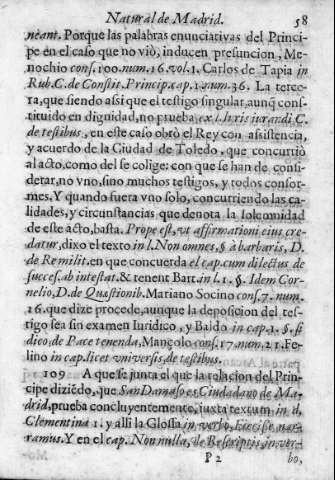 Natural de Madrid. 58
neant. Porque las palabras enunciativas del Princi-
pe en el caso que no viò, inducen presuncion, Me-
nochio cons. 100. num. 16. vol. 1. Carlos de Tapia in
Rub. C. de Constit. Princip. cap. 1. num. 36. La terce-
ra, que siendo assi que el testigo singular, aunq̃ cons-
tituido en dignidad, no prueba, ex l. Iuris iurandi C.
de testibus, en este caso obrò el Rey con asistencia,
y acuerdo de la Ciudad de Toledo, que concurriò
al acto, como del se colige: con que se han de consi-
derar, no vno, sino muchos testigos, y todos confor-
mes. Y quando fuera vno solo, concurriendo las ca-
lidades, y circunstancias que denota la solemnidad
de este acto, basta. Prope est, vt affirmationi eius cre-
datur, dixo el texto in l. Non omnes, §. à barbaris, D.
de Re milit. en que concuerda el cap. cum dilectus de
succes. ab intestat. & tenent Bart. in l. 1. §. Idem Cor-
nelio, D. de Quæstionib. Mariano Socino cons. 7. num.
16. que dize procede, aunque la deposicion del tes-
tigo sea sin examen Iuridico, y Baldo in cap. 1. §. si
dico, de Pace tenenda, Mançolo cons. 17. num. 21. Fe-
lino in cap. licet vniversis, de testibus.
109 A que se junta el que la relacion del Prin-
cipe diziẽdo, que San Damaso es Ciudadano de Ma-
drid, prueba concluyentemente, iuxta textum, in d.
Clementina 1. y alli la Glossa in verbo, Fecisse nar-
ramus. Y en el cap. Non nulla, de Rescriptis, in ver-
P 2 bo,